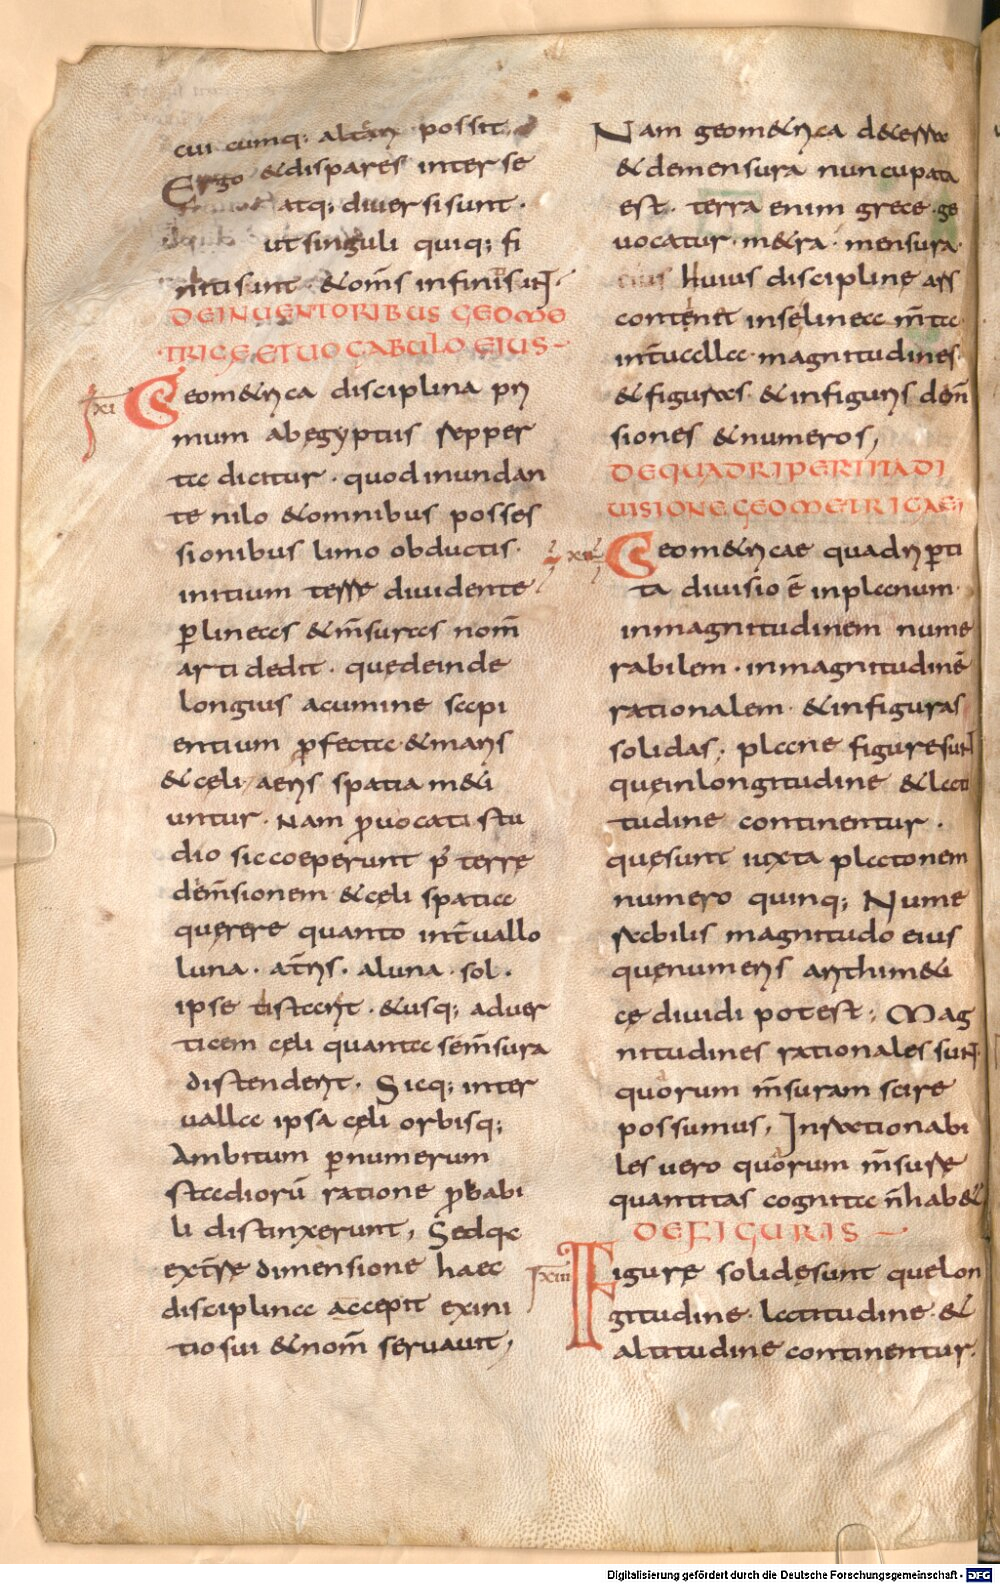 cui cumq; altari possit
Ergo & dispares inter se
atq; diuersi sunt.
ut singuli quiq; fi
niti sint. & om̄s infiniti sint.
DE INUENTORIBUS GEOME
TRICE, ET UOCABULO EIUS
xi Geom&rica disciplina pri
mum ab egyptiis repper
ta dicitur. quod inundan
te nilo & omnibus posses
sionibus limo obductis.
initium terre diuidente
p̄ lineas & m̄suras nom̄
arti dedit. que deinde
longius acumine sapi
entium p̄fecta & maris
& cęli, aeris spatia m&i
untur. Nam p̄uocati stu
dio sic coeperunt p̄ terrę
dem̄sionem & cęli spatia
quęrere quanto int̄uallo
luna. a t̄ris. a luna. sol.
ipse distar&. & usq; ad uer
ticem cęli quanta se m̄sura
distender&. Sicq; inter
ualla ipsa cęli orbisq;
Ambitum p̄ numerum
stadiorū ratione p̄babi
li distinxerunt, Sed qa
ex t̄re dimensione haec
disciplina accepit ex ini
tio sui & nom̄ seruauit,
Nam geom&rica de
& de mensura nuncupata
est. terra enim grece ge
uocatur. m&ra. mensura.
huius discipline ars
conten& in se linea m̄ta
int̄ualla magnitudines.
& figuras. & in figuris dem̄
siones & numeros,
DE QUADRIPERTITA DI
UISIONE GEOMETRICAE;
xii Geom&ricae quadrip̄ti
ta diuisio ē in planum.
in magnitudinem nume
rabilem. in magnitudinē
rationalem. & in figuras
solidas; plane figure sunt
que in longitudine & lati
tudine continentur.
quę sunt iuxta platonem
numero quinq; Nume
rabilis magnitudo eius
quę numeris arithm&i
cę diuidi potest; Mag
nitudines rationales sunt
quorum m̄suram scire
possumus, Inrationabi
les uero quorum m̄sure
quantitas cognita n̄ hab&
DE FIGURIS
xiii Figurę solidę sunt que lon
gitudine. latitudine. &
altitudine continentur.
Digitalisierung gefördert durch die Deutsche Forschungsgemeinschaft - DFG